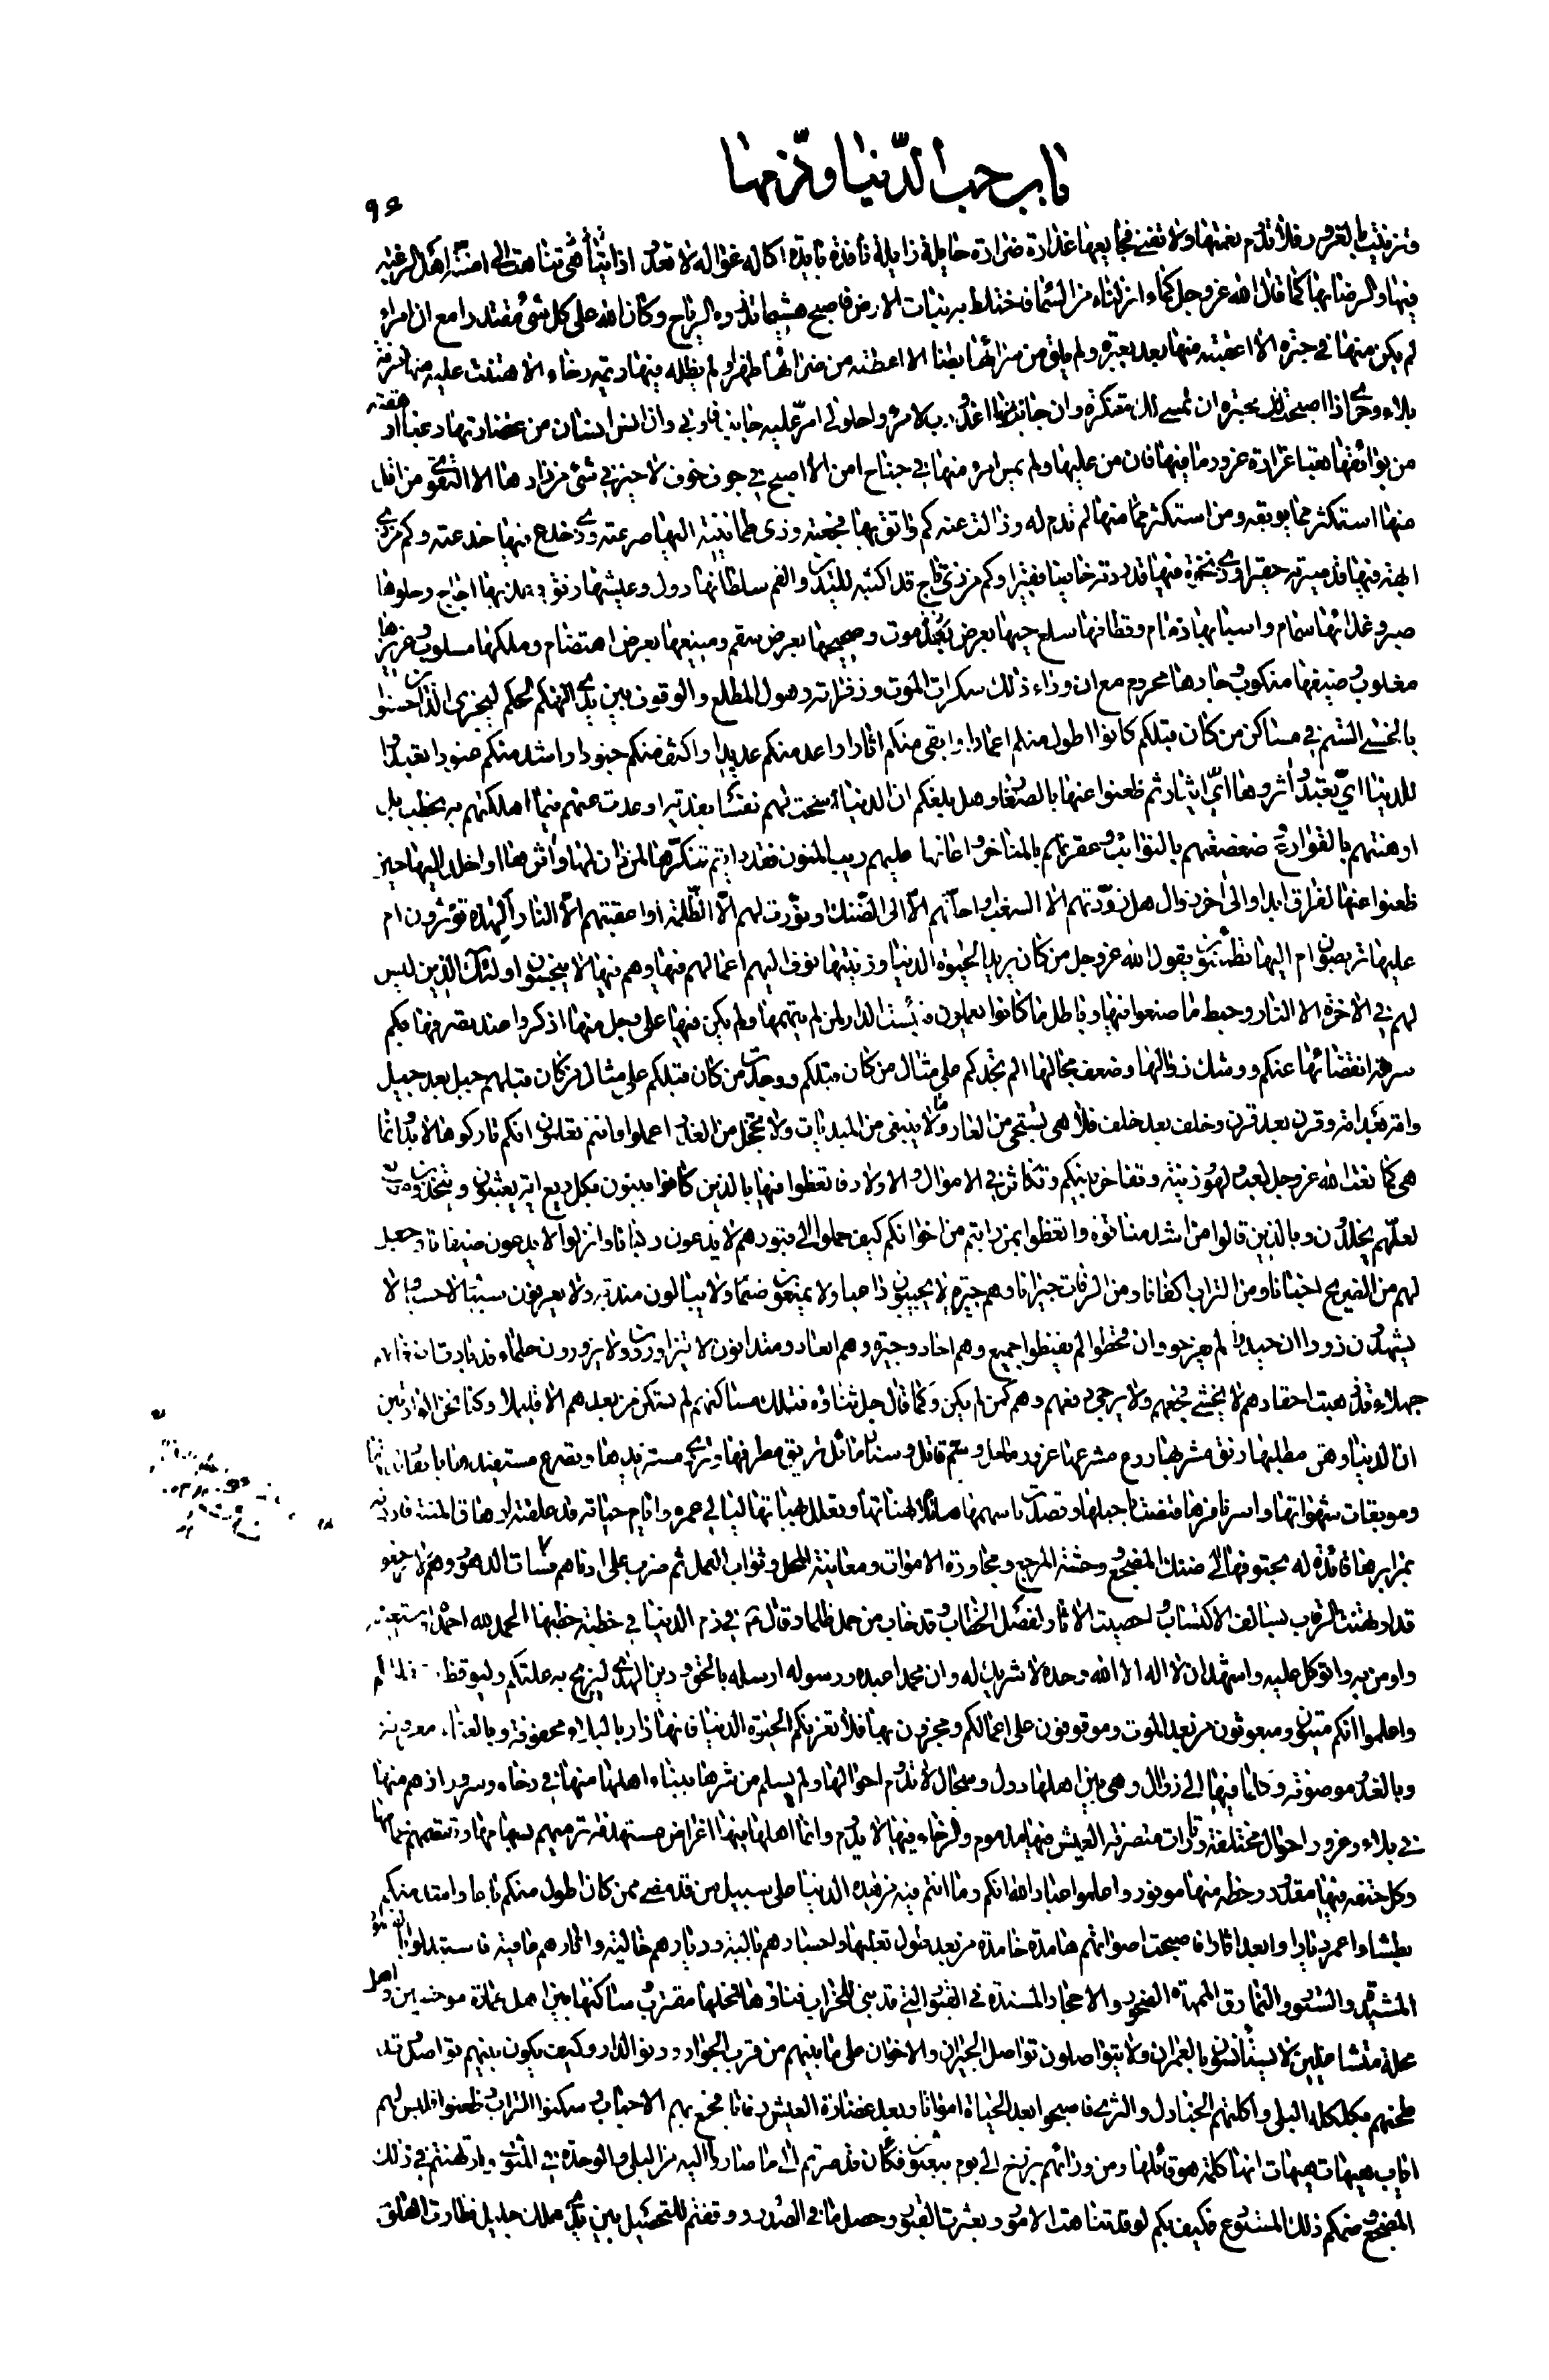 باب حب الدّنيا وذمّها
٩٤
وتزينت بالغرور فلا تدوم نعمتها ولا تفنى فجايعها غدارة ضرارة حايلة زايلة نافدة بايدة اكالة غوالة لا تعدو اذا تناهت الى امنية اهل الرغبة
فيها والرضا بها كما قال الله عز وجل كماء انزلناه من السماء فاختلط به نبات الارض فاصبح هشيما تذروه الرياح وكان الله على كل شئ مقتدرا مع ان امرا
لم يكن منها في حبرة الا اعقبته منها بعد بعبرة ولم يلق من سرائها بطنا الا اعطته من ضرائها ظهرا ولم تظله فيها ديمة رخاء الا هتنت عليه منها مزنة
بلاء وحرى اذا اصبحت له بحبرة ان تمسي له متنكرة وان جانب منها امرّ عليه جانب فاوبى وان لبس انسان من غضارتها رغبا ارهقته
من بوائقها تعبا غرارة غرور ما فيها فان من عليها ولم يمس امرء منها في جناح امن الا اصبح في جوف خوف لا خير في شئ من زادها الا التقوى من اقل
منها استكثر مما يوبقه ومن استكثر مما منها لم تدم له وزالت عنه كم واثق بها فجعته وذى طمانينة اليها صرعته وذى خدع فيها خدعته وكم من ذى
ابهة فيها قد صيرته حقيرا وذى نخوة فيها قد ردته خائفا فقيرا وكم من ذى تاج قد اكبته لليدين والفم سلطانها دول وعيشها رنق وعذبها اجاج وحلوها
صبر وغذائها سمام واسبابها رمام وقطافها سلع حيها بعرض موت وصحيحها بعرض سقم ومنيعها بعرض اهتضام وملكها مسلوب وعزيزها
مغلوب وضيفها منكوب وجارها محروم مع ان وراء ذلك سكرات الموت وزفراته وهول المطلع والوقوف بين يدى الحكم ليجزى الذين احسنوا
بالحسنى الستم في مساكن من كان قبلكم كانوا اطول منكم اعمارا وابقى منكم اثارا واعد منكم عديدا واكثف منكم جنودا واشد منكم عنودا تعبدوا
للدنيا اي تعبد واثروها اي ايثار ثم ظعنوا عنها بالصغار وهل بلغكم ان الدنيا سخت لهم نفسا بفدية او عدت عنهم فيما اهلكتهم به بخطب بل
اوهنتهم بالقوارع وضعضعتهم بالنوائب وعقرتهم بالمناخر واعانت عليهم ريب المنون فقد رايتم تنكرها لمن دان لها واثرها واخلد اليها حين
ظعنوا عنها لفراق ابد او الى اخر زوال هل زودتهم الا السغب واحلتهم الا الى الضنك او نورت لهم الا الظلمة او اعقبتهم الا النار الهذه تؤثرون ام
عليها تحرصون ام اليها تطمئنون يقول الله عز وجل من كان يريد الحيوة الدنيا وزينتها نوف اليهم اعمالهم فيها وهم فيها لا يبخسون اولئك الذين ليس
لهم في الاخرة الا النار وحبط ما صنعوا فيها وباطل ما كانوا يعملون فبئست الدار لمن لم يتهمها ولم يكن فيها على وجل منها اذكروا عند تصرفها بكم
سرعة انقضائها عنكم ووشك زوالها وضعف مجالها الم تجدكم على مثال من كان قبلكم ووجدت من كان قبلكم على مثال من كان قبلهم جيل بعد جيل
وامة بعد امة وقرن بعد قرن وخلف بعد خلف فلا هي تستحي من العار ولا ينبغي من المبديات ولا تخجل من الغدر اعملوا وانتم تعلمون انكم تاركوها لا بد انما
هي كما نعت الله عز وجل لعب ولهو وزينة وتفاخر بينكم وتكاثر في الاموال والاولاد فاتعظوا فيها بالذين كانوا يبنون بكل ريع اية يعبثون ويتخذون
لعلهم يخلدون وبالذين قالوا من اشد منا قوة واتعظوا بمن رايتم من اخوانكم كيف حملوا الى قبورهم لا يدعون ركبانا وانزلوا لا يدعون ضيفانا وجعل
لهم من الضريح اجنانا ومن التراب اكفانا ومن الرفات جيرانا وهم جيرة لا يجيبون داعيا ولا يمنعون ضيما ولا يبالون مندبة ولا يعرفون سيئا لا حسنا لا
يشهدون زورا ان جيدوا لم يفرحوا وان قحطوا لم يقنطوا جميع وهم احاد وجيرة وهم ابعاد ومتدانون لا يتزاورون ولا يزورون حلماء قد
جهلاء قد ذهبت احقادهم لا يخشى فجعهم ولا يرجى دفعهم وهم كمن لم يكن وكما قال جل ثناؤه فتلك مساكنهم لم تسكن من بعدهم الا قليلا وكنا نحن الوارثين
ان الدنيا وهي مطلبها رنق مشربها ردغ مشرعها غرور ماحل وسم قاتل وسناد مائل تريق مطرفها وتردى مستزيدها وتصرع مستفيدها
وموبقات شهواتها واسر نافرها قنصت باحبلها وقصدت باسهمها مائلا لهناتها وتعلل بهباتها ليالي عمره وايام حياته قد علقته اوهاق المنية
بمرايرها قائدة له بحتوفها الى ضنك المضجع ووحشة المرجع ومجاورة الاموات ومعاينة المحل وثواب العمل ثم ضرب على اذنهم سبات الدهور وهم لا يرجعون
قد ارتهنت الرقاب بسالف الاكتساب واحصيت الاثار لفصل الخطاب وقد خاب من حمل ظلما وقال ع في ذم الدنيا في خطبة خطبها الحمد لله احمده واستعينه
واومن به واتوكل عليه واشهد ان لا اله الا الله وحده لا شريك له وان محمدا عبده ورسوله ارسله بالحق ودين الهدى ليزيح به علتكم وليوقظ
واعلموا انكم ميتون ومبعوثون من بعد الموت وموقوفون على اعمالكم ومجزون بها فلا تغرنكم الحيوة الدنيا فانها دار بالبلاء محفوفة وبالعناء معروفة
وبالغدر موصوفة وكلما فيها الى زوال وهي بين اهلها دول وسجال لا تدوم احوالها ولم يسلم من شرها بينا اهلها منها في رخاء وسرور اذ هم منها
في بلاء وغرور احوال مختلفة وتارات متصرفة العيش فيها مذموم والرخاء فيها لا يدوم وانما اهلها فيها اغراض مستهدفة ترميهم بسهامها وتقصمهم بحمامها
وكل حتفه فيها مقدور وحظه منها موفور واعلموا عباد الله انكم وما انتم فيه من هذه الدنيا على سبيل من قد مضى ممن كان اطول منكم باعا واشد منكم
بطشا واعمر ديارا وابعد اثارا فاصبحت اصواتهم هامدة خامدة من بعد طول تقلبها واجسادهم بالية وديارهم خالية واثارهم عافية فاستبدلوا بالقصور
المشيدة والستور والنمارق الممهدة الصخور والاحجار المسندة في القبور التي قد بنى للخراب فناؤها فمحلها مقترب وساكنها بين اهل عمارة موحشين واهل
محلة متشاغلين لا يستأنسون بالعمران ولا يتواصلون تواصل الجيران والاخوان على ما بينهم من قرب الجوار ودنو الدار وكيف يكون بينهم تواصل وقد
طحنهم بكلكله البلى واكلتهم الجنادل والثرى فاصبحوا بعد الحياة امواتا وبعد غضارة العيش رفاتا فجع بهم الاحباب وسكنوا التراب وظعنوا فليس لهم
اياب هيهات هيهات انها كلمة هو قائلها ومن ورائهم برزخ الى يوم يبعثون فكأن قد صرتم الى ما صاروا اليه من البلى والوحدة في المثوى وارتهنتم في ذلك
المضجع وضمكم ذلك المستودع فكيف بكم لو قد تناهت الامور وبعثرت القبور وحصل ما في الصدور ووقفتم للتحصيل بين يدى ملك جليل فطارت القلوب